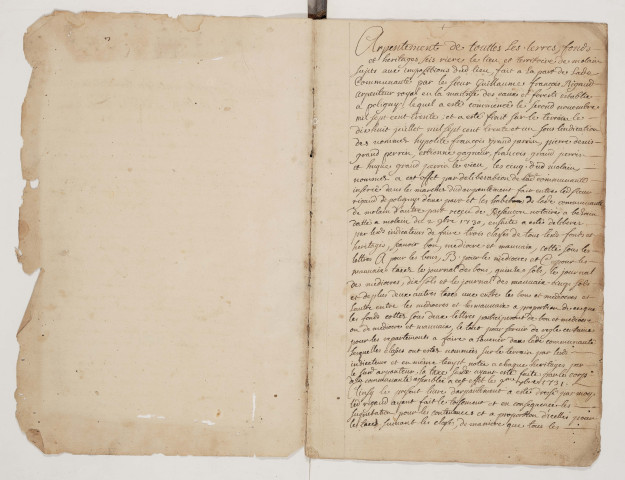 Arpentements de touttes les terres, fonds
et heritages, sis riere le lieu, et territoire de molain
sujets aux impositions dud lieu, fait a la part de lad
Communauté par le sieur Guillaume François Rigaud
arpenteur royal en la maitrise des eaux et forests establie
a poligny; lequel a esté commencés le second novembre
mil sept cent trente, et a esté finit sur le terrain le
dixhuit juillet mil sept cent trente et un sous lindication
des nommez hypolite françois grand perrin, pierre denis
grand perrin, estienne gagneur, françois grand perrin
et hugue grand perrin le vieu, les cinq dud molain
nommez a cet effet par deliberation de lad communauté
inserée dans les marchez dud arpantement fait entre led sieur
rigaud de poligny d'une part et les habitans de lad communauté
de molain d'autre part receu de notaire a
datté a molain du 2 9bre 1730, ensuitte a estés deliberez
par led indicateurs de faire trois classes de tous les fonds et
heritages, sçavoir bon, mediocre et mauvais, cottés sous les
lettres A pour les bons, B. pour les mediocres et C pour les
mauvais taxez le journal des bons, quinze sols, le journal
des mediocres, dix sols et le journal des mauvais cinq sols
et de plus deux autres taxes une entre les bons et mediocres et
lautre entre les mediocres et les mauvais a proportion
les fonds cottez sous deux lettres participeront de bon et mediocre
ou de mediocre et mauvais, le tout pour servir de regle
pour les repartements a faire a lavenir dans ladite communauté
lesquelles classes ont estés nommées sur le terrain par lesd
indicateurs et en même temps notée a chaque heritages par
le sud arpenteur, la taxe susd ayant esté faite par le corps
de la communauté assemblée a cet effet le 9bre 1731.
Ainsy le present livre darpantement a estés dressé par moy
led Rigaud ayant fait le toisement et en consequence les
supputation pour les contenances et a proportion dicelles
les taxes suivant les classes, de maniere que tous les